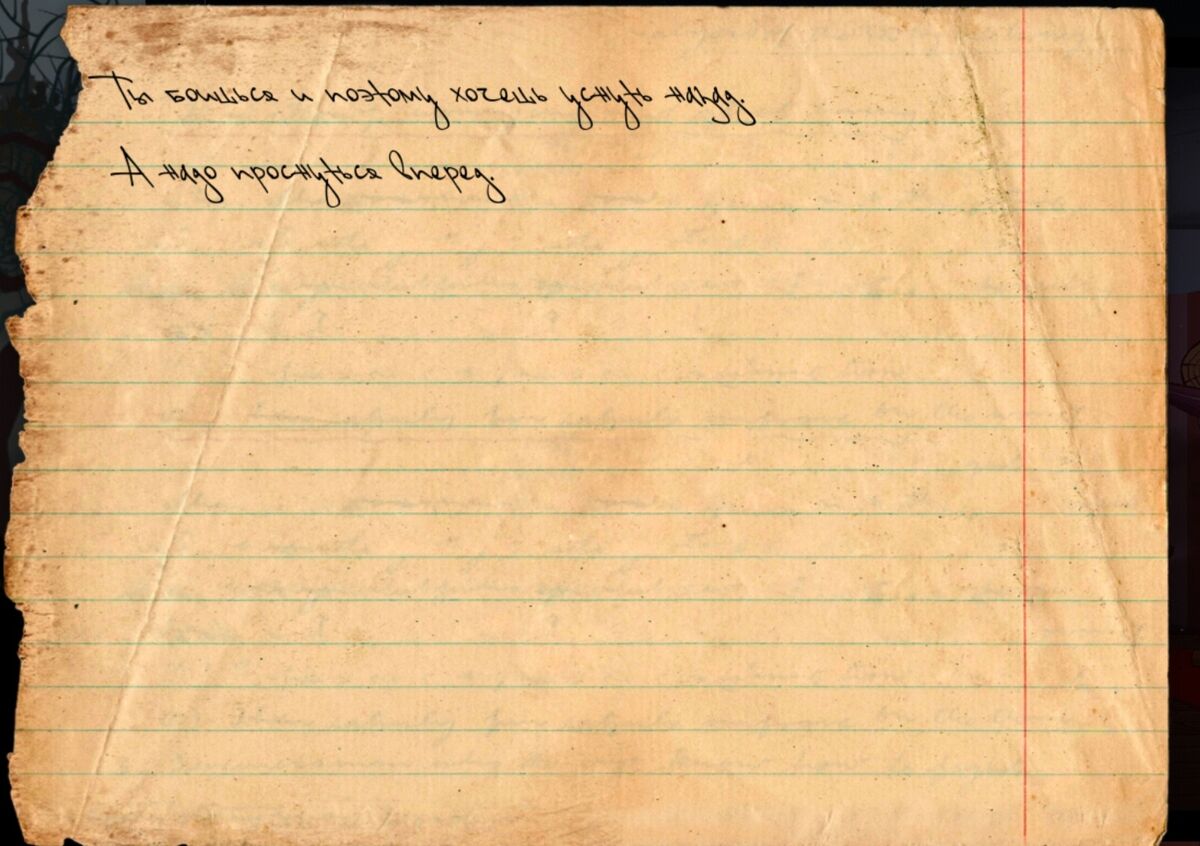 Ты боишься и поэтому хочешь уснуть назад.
А надо проснуться вперед.